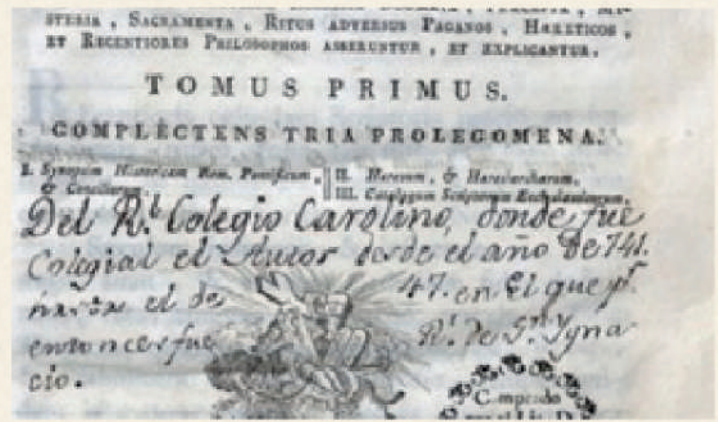 STERIA, SACRAMENTA, RITUS ADVERSUS PAGANOS, HÆRETICOS,
ET RECENTIORES PHILOSOPHOS ASSERUNTUR, ET EXPLICANTUR.
TOMUS PRIMUS.
COMPLECTENS TRIA PROLEGOMENA.
I. Synopsim Historicam Rom. Pontificum,
& Conciliorum.
II. Hæresum, & Hæresiarcharum,
III. Catalogum Scriptorum Ecclesiasticorum.
Del R.l Colegio Carolino, donde fue
Colegial el Autor desde el año de 741.
el de 47. en el que
entonces fue R.l de S.n Ygna
cio.
Comprado